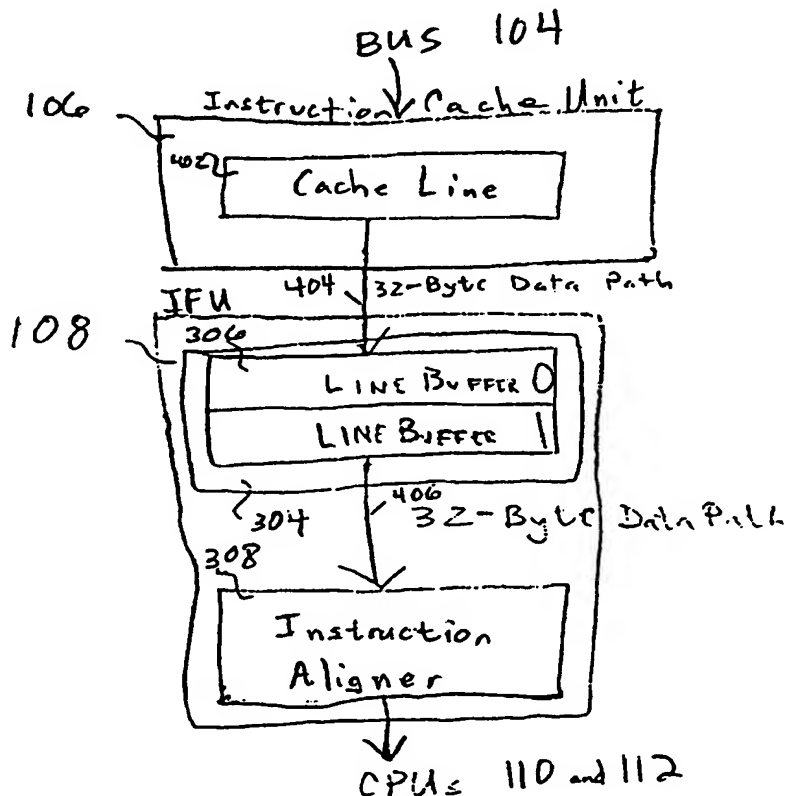 BUS 104
106
Instruction Cache Unit
402
Cache Line
404
32-Byte Data Path
IFU
108
306
LINE BUFFER 0
LINE BUFFER 1
304
406
32-Byte Data Path
308
Instruction
Aligner
CPUs 110 and 112